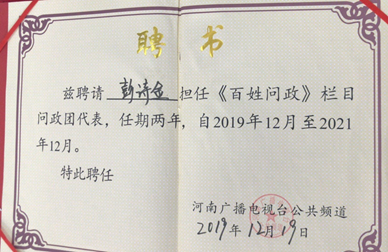 聘书
兹聘请 彭诗金 担任《百姓问政》栏目
问政团代表，任期两年，自2019年12月至2021
年12月。
特此聘任
河南广播电视台公共频道
2019年12月19日